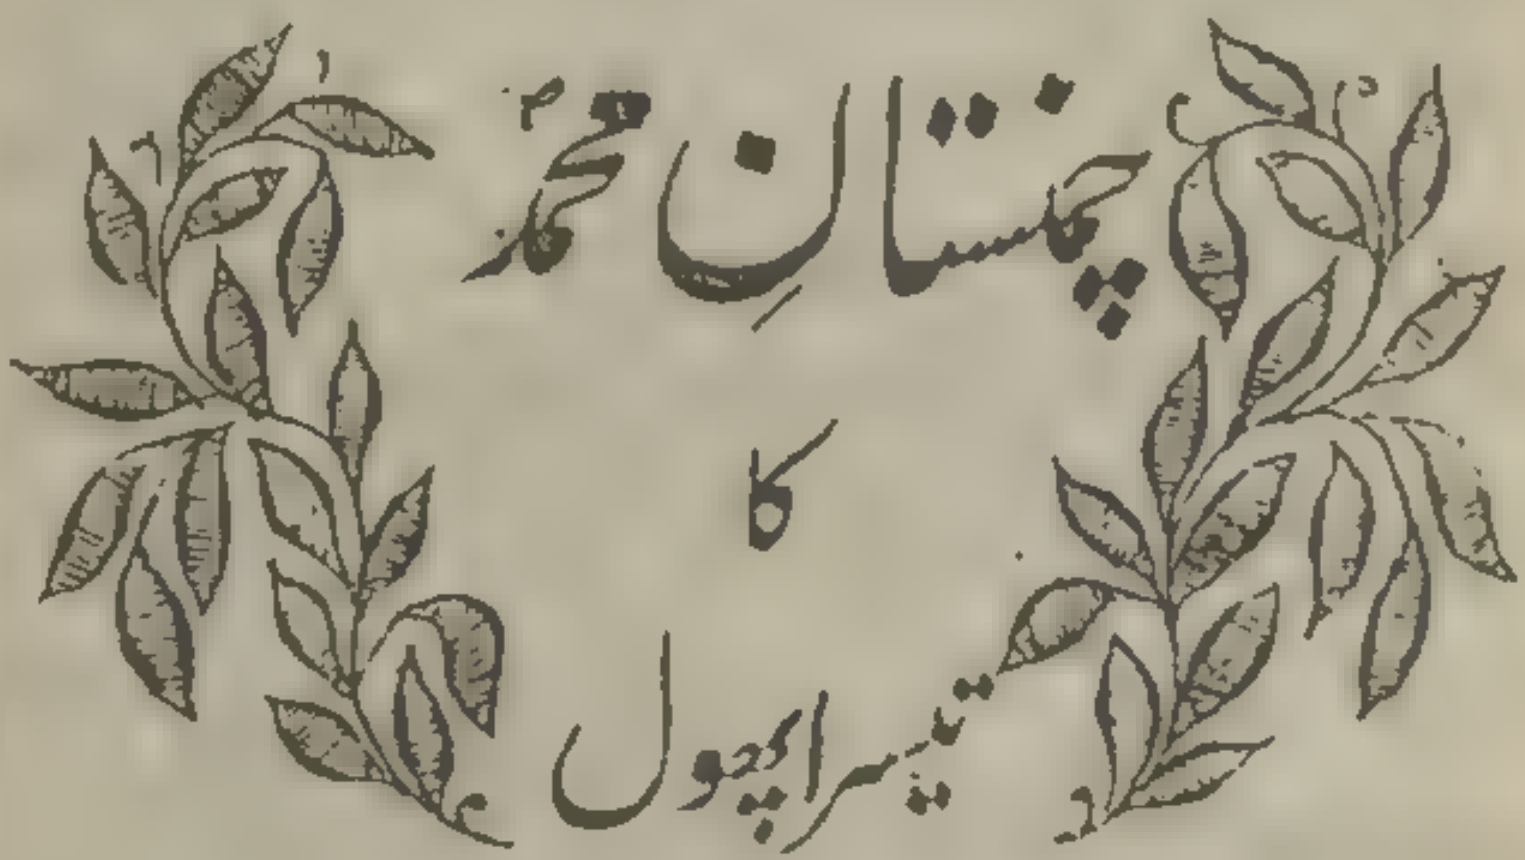 چمنستانِ محمدؐ
کا
تیسرا پھول